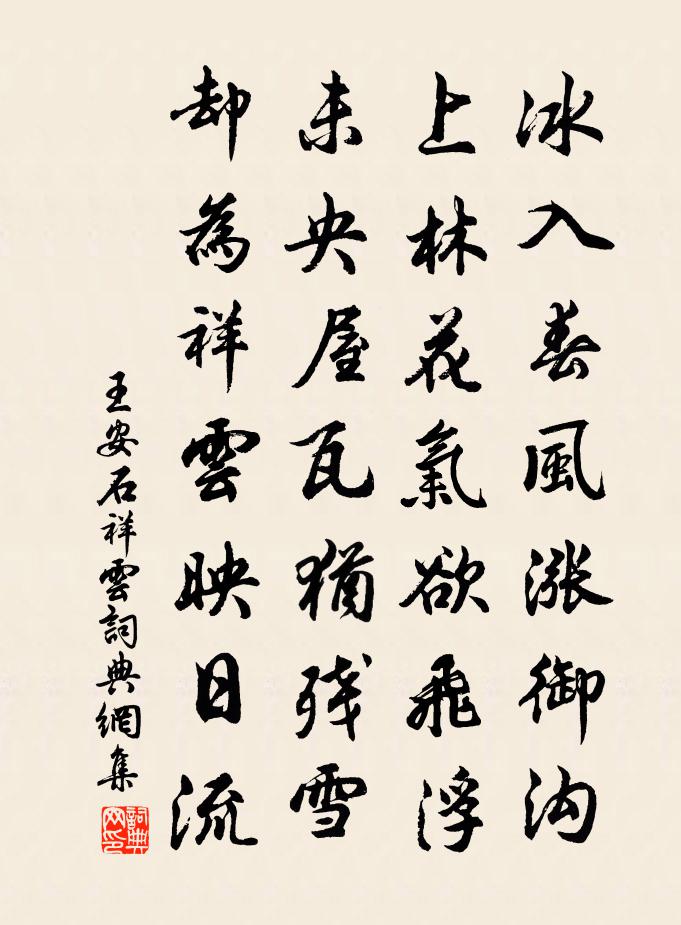 冰入春風漲御沟
上林花氣欲飛浮
未央屋瓦猶残雪
却為祥雲映日流
王安石祥雲詞典網集
詞典網印